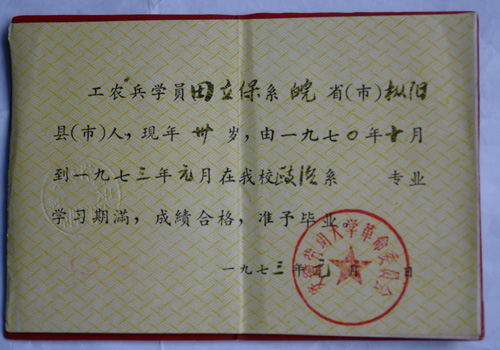 工农兵学員田立保系皖省(市)枞阳
县(市)人，现年卅岁，由一九七〇年十月
到一九七三年元月在我校政治系 专业
学习期滿，成績合格，准予毕业。
一九七三年元月 日
大学革命委员会